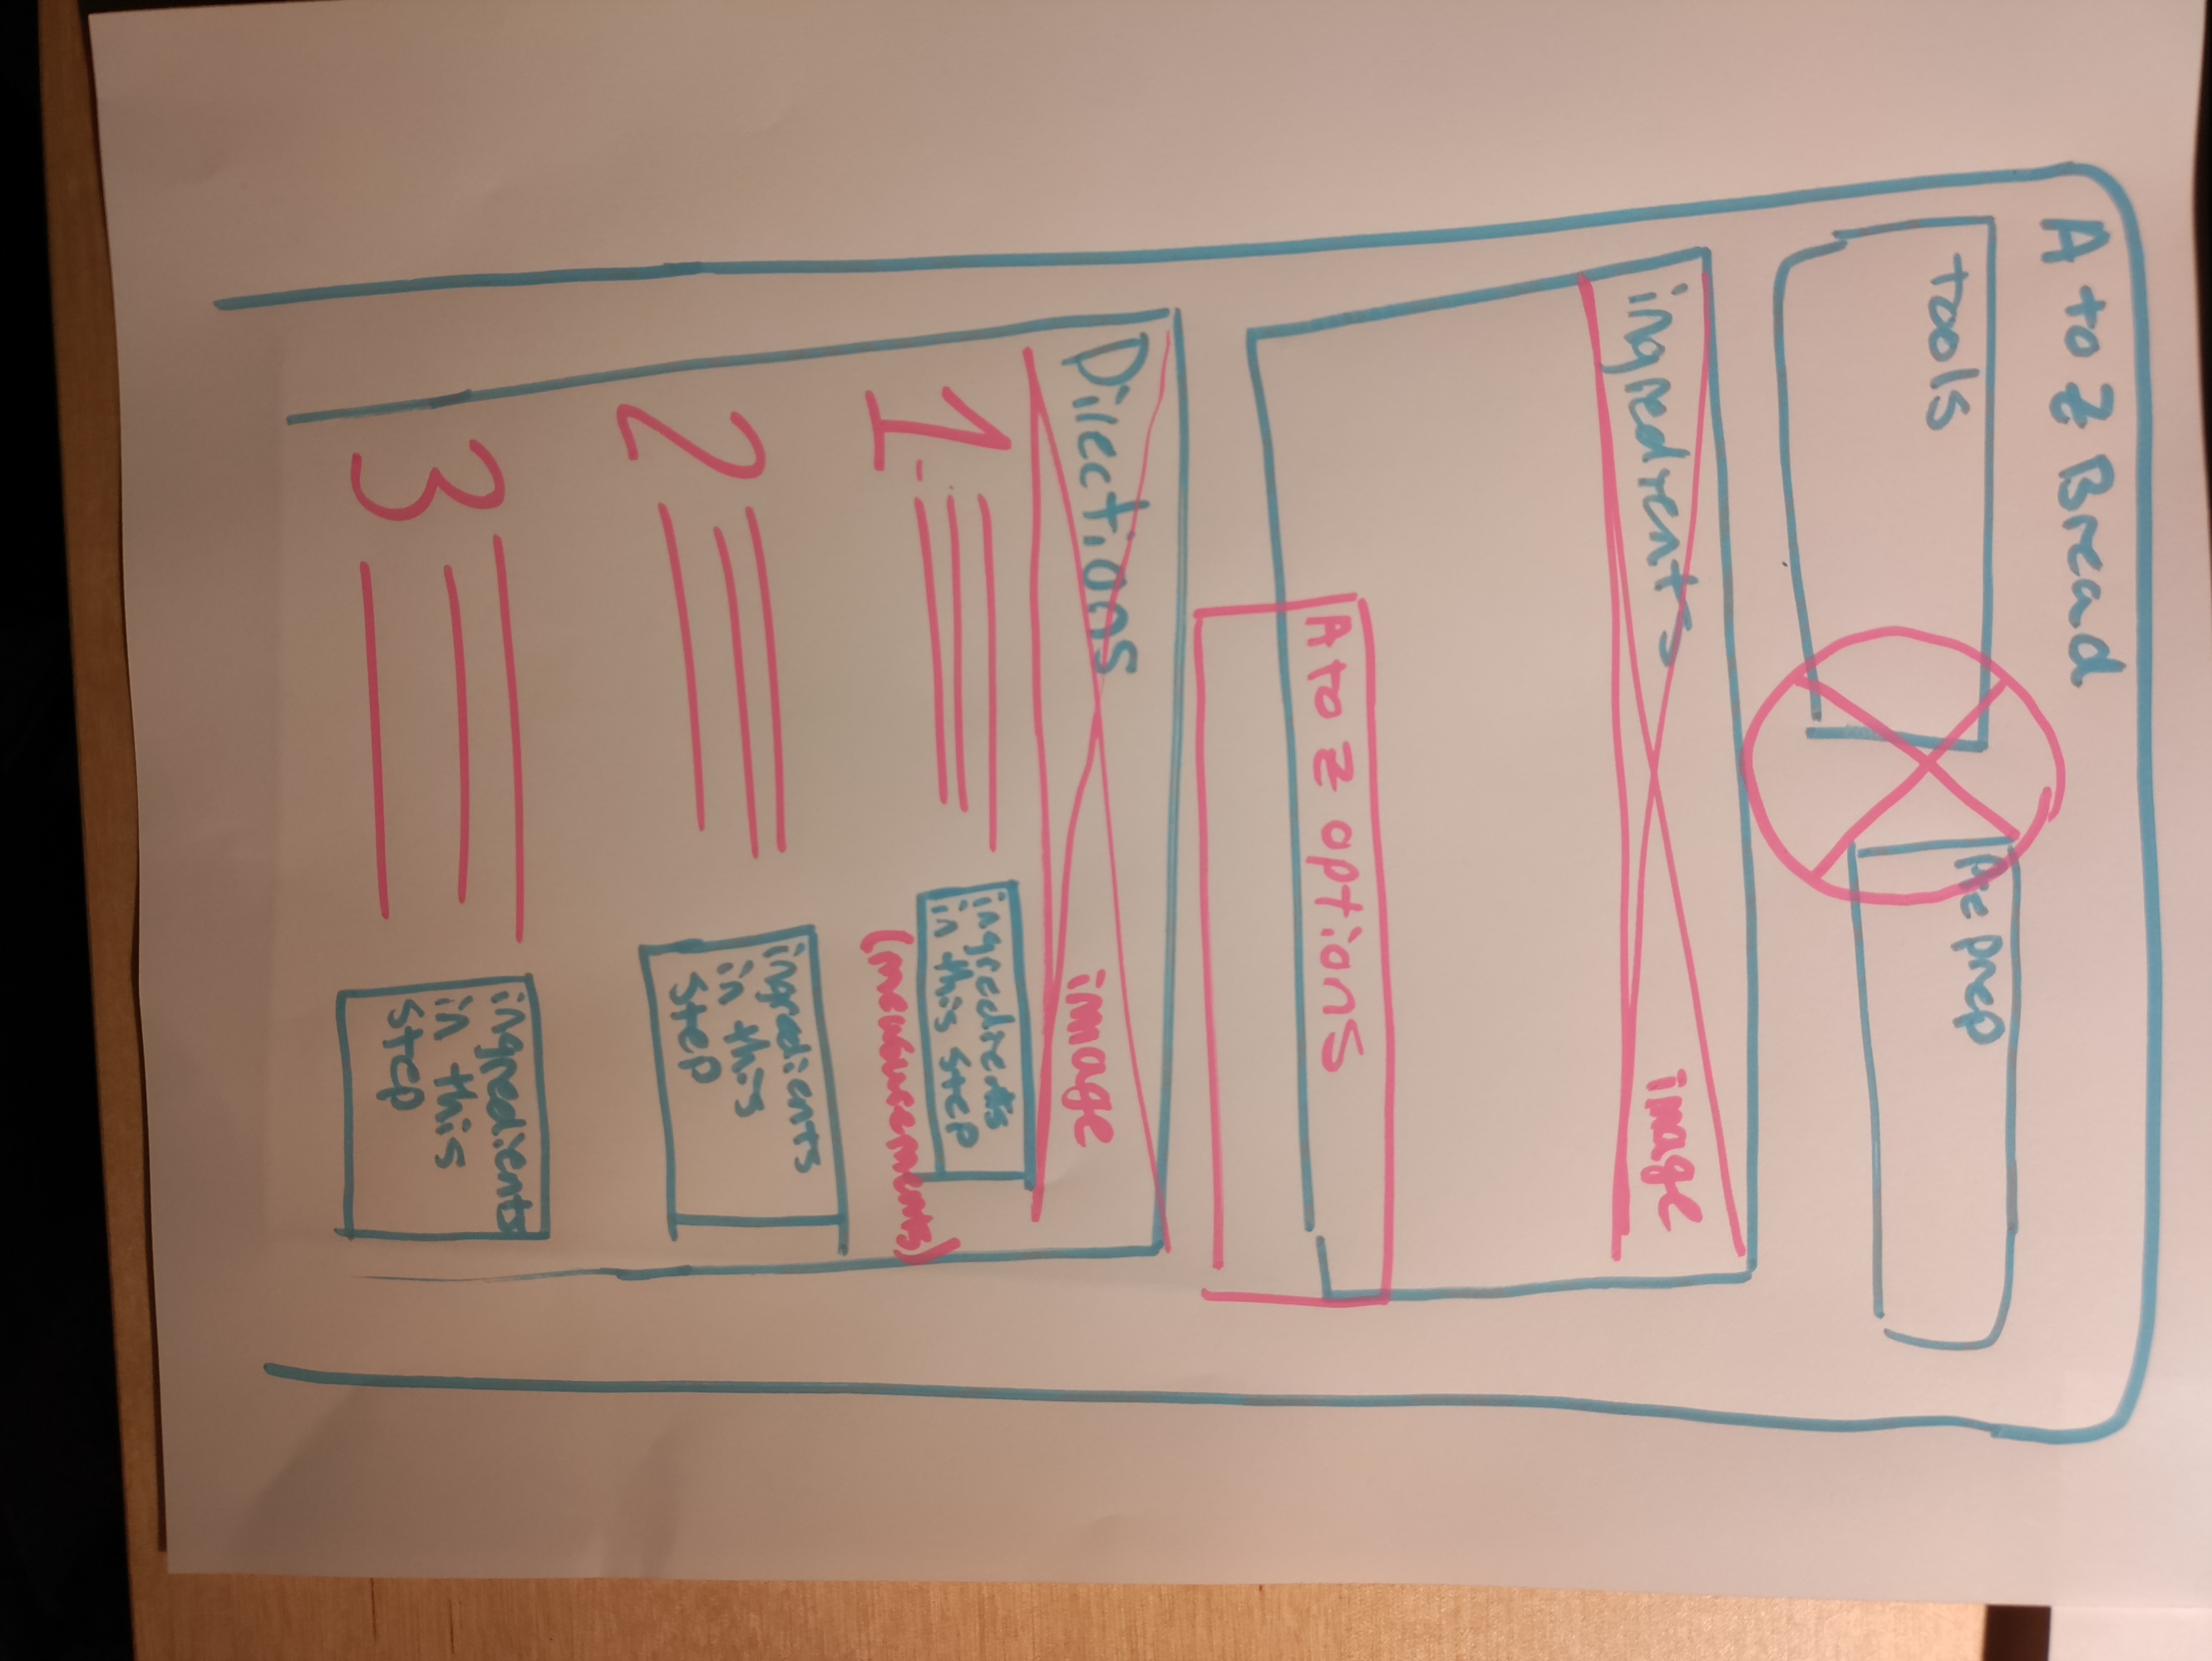 A to Z Bread
tools
Pre prep
ingredients
image
A to Z options
Directions
image
1.
ingredients
in this step
(measurements)
2
ingredients
in this
step
3
ingredients
in this
step